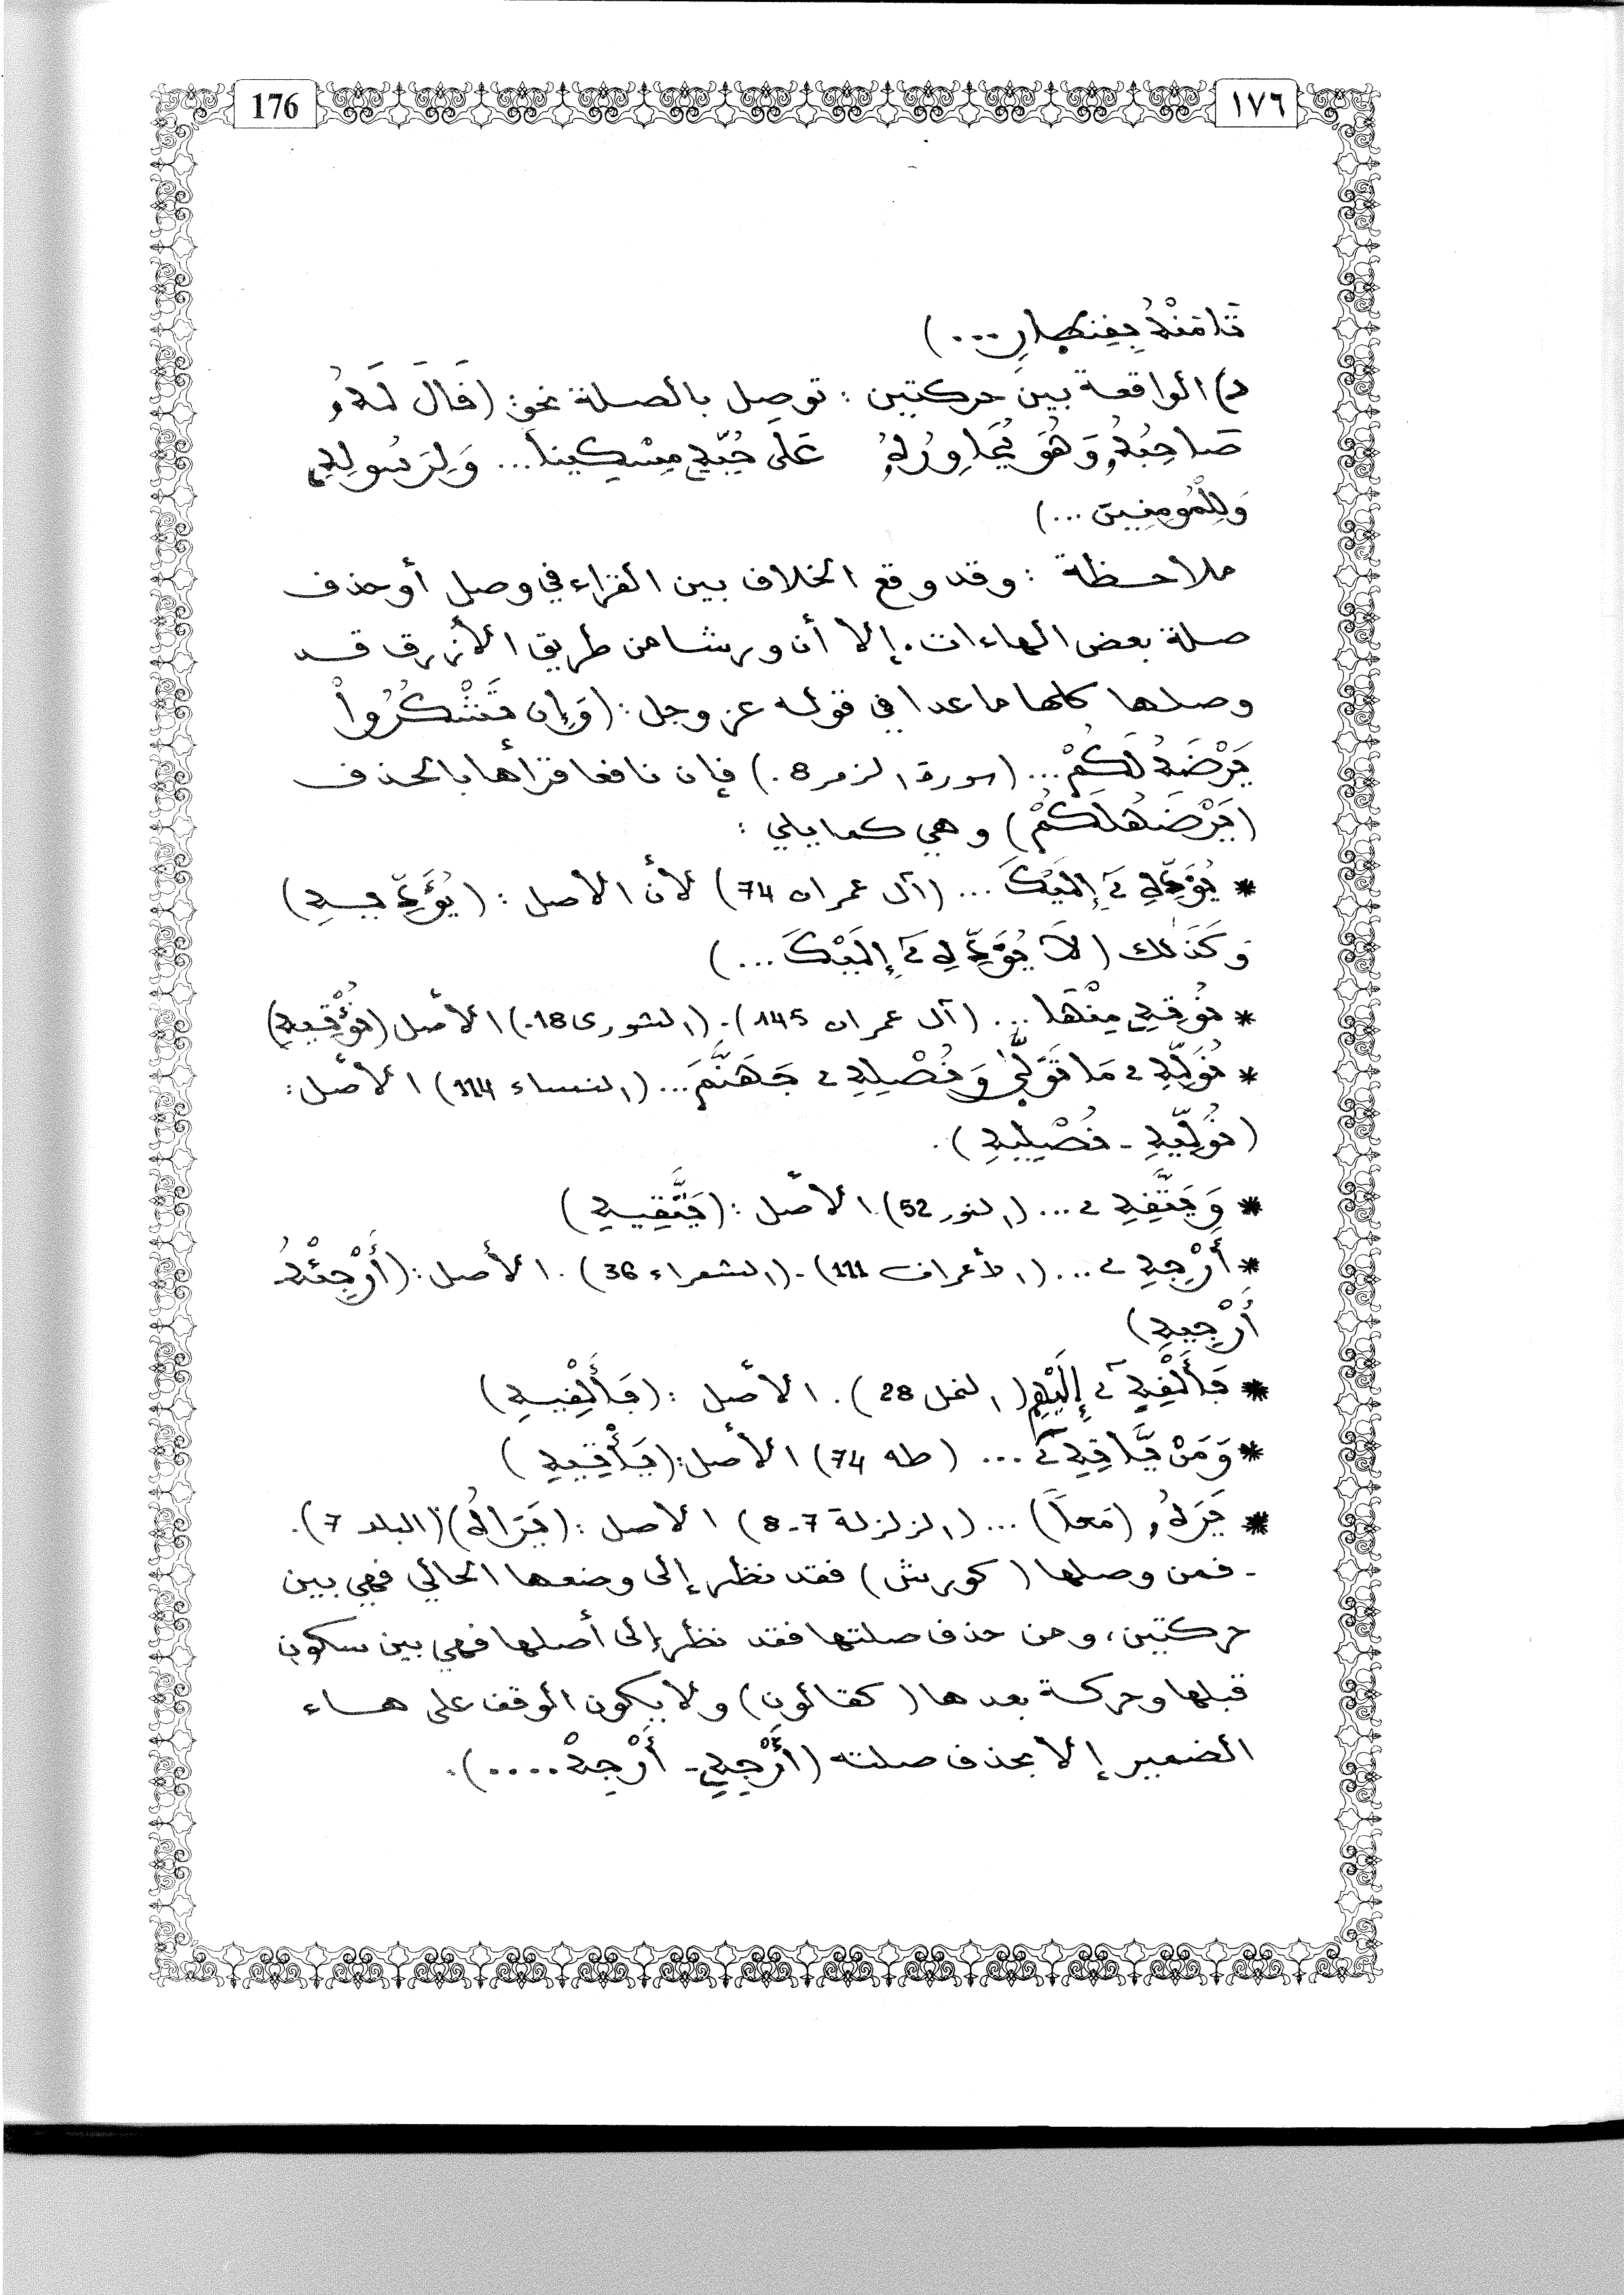 176
١٧٦
تَامَنْهُ بِقِنطِارِ...)
د) الواقعة بين حركتين : توصل بالصلة نحو: (قَالَ لَهُۥ
صَاحِبُهُۥ وَهُوَ يُحَاوِرُهُۥ عَلَى حُبِّهِۦ مِسْكِيناً... وَلِرَسُولِهِۦ
وَلِلْمُومِنِينَ ...)
ملاحظة : وقد وقع الخلاف بين القراء في وصل أو حذف
صلة بعض الهاءات. إلا أن ورشا من طريق الأزرق قد
وصلها كلها ما عدا في قوله عز وجل : (وَإِن تَشْكُرُواْ
يَرْضَهُ لَكُمْ... (سورة الزمر 8.) فإن نافعا قرأها بالحذف
(يَرْضَهُ لَكُمْ) وهي كما يلي :
* يُؤَدِّهِۦٓ إِلَيْكَ ... (آل عمران 74) لأن الأصل : (يُؤَدِّيهِ)
وَكَذَلك (لاَ يُؤَدِّهِۦٓ إِلَيْكَ ...)
* نُوتِهِۦ مِنْهَا ... (آل عمران 145). (الشورى 18.) الأصل (نُؤْتِيهِ)
* نُوَلِّهِۦ مَا تَوَلَّىٰ وَنُصْلِهِۦ جَهَنَّمَ... (النساء 114) الأصل :
(نُوَلِّيهِ - نُصْلِيهِ).
* وَيَتَّقِهِۦ ... (النور 52). الأصل : (يَتَّقِيهِ)
* أَرْجِهِۦ ... (الأعراف 111) - (الشعراء 36). الأصل : (أَرْجِئْهُ
أَرْجِيهِ)
* فَأَلْقِهِۦٓ إِلَيْهِمْ (النمل 28). الأصل : (فَأَلْقِيهِ)
* وَمَنْ يَّاتِهِۦ ... (طه 74) الأصل : (يَأْتِيهِ)
* يَرَهُۥ (مَعاً) ... (الزلزلة 7-8) الأصل : (يَرَاهُ) (البلد 7).
- فمن وصلها (كورش) فقد نظر إلى وضعها الحالي فهي بين
حركتين، ومن حذف صلتها فقد نظر إلى أصلها فهي بين سكون
قبلها وحركة بعدها (كقالون) ولا يكون الوقف على هاء
الضمير إلا بحذف صلته (أَرْجِهِۦ - أَرْجِهْ ....).